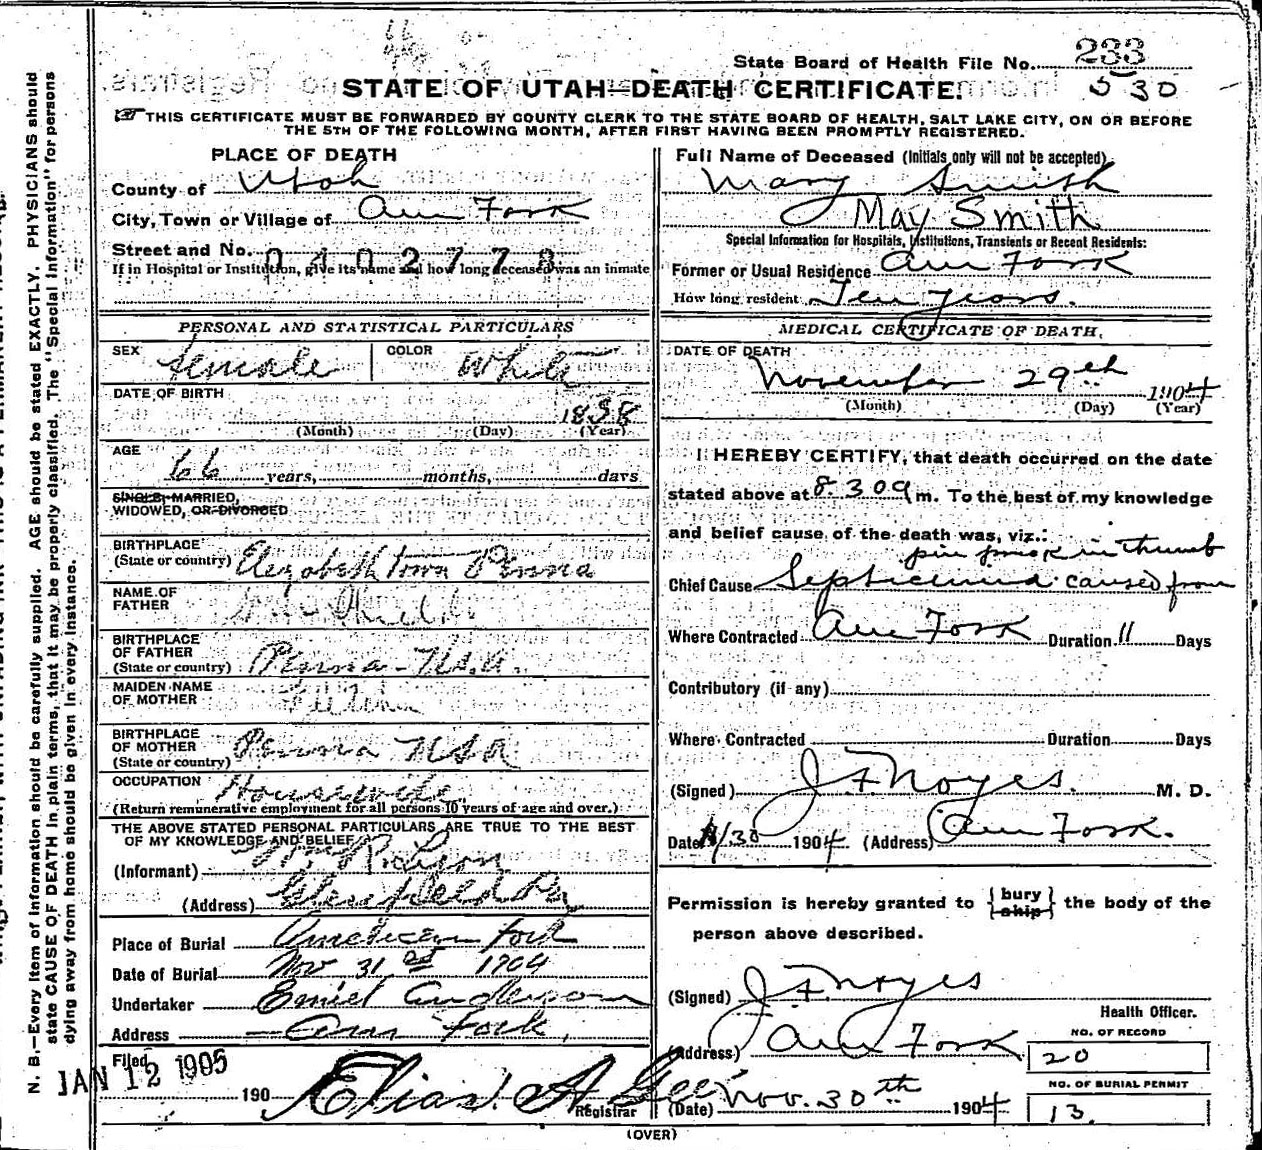 State Board of Health File No. 233
STATE OF UTAH—DEATH CERTIFICATE.
530
THIS CERTIFICATE MUST BE FORWARDED BY COUNTY CLERK TO THE STATE BOARD OF HEALTH, SALT LAKE CITY, ON OR BEFORE
THE 5TH OF THE FOLLOWING MONTH, AFTER FIRST HAVING BEEN PROMPTLY REGISTERED.
PLACE OF DEATH
County of Utah
City, Town or Village of Am Fork
Street and No. 0402778
If in Hospital or Institution, give its name and how long deceased was an inmate
PERSONAL AND STATISTICAL PARTICULARS
SEX female COLOR White
DATE OF BIRTH 1838
(Month) (Day) (Year)
AGE 66 years, months, days
SINGLE, MARRIED,
WIDOWED, OR DIVORCED
BIRTHPLACE
(State or country) Elizabethtown Penna
NAME OF
FATHER
BIRTHPLACE
OF FATHER
(State or country) Penna - U.S.A.
MAIDEN NAME
OF MOTHER
BIRTHPLACE
OF MOTHER
(State or country) Penna USA
OCCUPATION Housewife
(Return remunerative employment for all persons 10 years of age and over.)
THE ABOVE STATED PERSONAL PARTICULARS ARE TRUE TO THE BEST
OF MY KNOWLEDGE AND BELIEF
(Informant) Wm R. Lyon
(Address) Pa
Place of Burial American Fork
Date of Burial Nov 31st 1904
Undertaker Emiel Anderson
Address Am Fork,
Filed
JAN 12 1905
190 Elias A Gee
Registrar
Full Name of Deceased (Initials only will not be accepted)
Mary Smith
May Smith
Special Information for Hospitals, Institutions, Transients or Recent Residents:
Former or Usual Residence Am Fork
How long resident Ten years.
MEDICAL CERTIFICATE OF DEATH.
DATE OF DEATH
November 29th 1904
(Month) (Day) (Year)
I HEREBY CERTIFY, that death occurred on the date
stated above at 8.30 a m. To the best of my knowledge
and belief cause of the death was, viz.:
pin prick in thumb
Chief Cause Septicemia caused from
Where Contracted Am Fork Duration 11 Days
Contributory (if any)
Where Contracted Duration Days
(Signed) J F Noyes. M. D.
Date 11/30 1904. (Address) Am Fork.
Permission is hereby granted to {bury ship} the body of the
person above described.
(Signed) J F Noyes
Health Officer.
(Address) Am Fork
NO. OF RECORD
20
NO. OF BURIAL PERMIT
13.
(Date) Nov. 30th 1904
(OVER)
N. B.—Every item of information should be carefully supplied. AGE should be stated EXACTLY. PHYSICIANS should
state CAUSE OF DEATH in plain terms, that it may be properly classified. The "Special Information" for persons
dying away from home should be given in every instance.